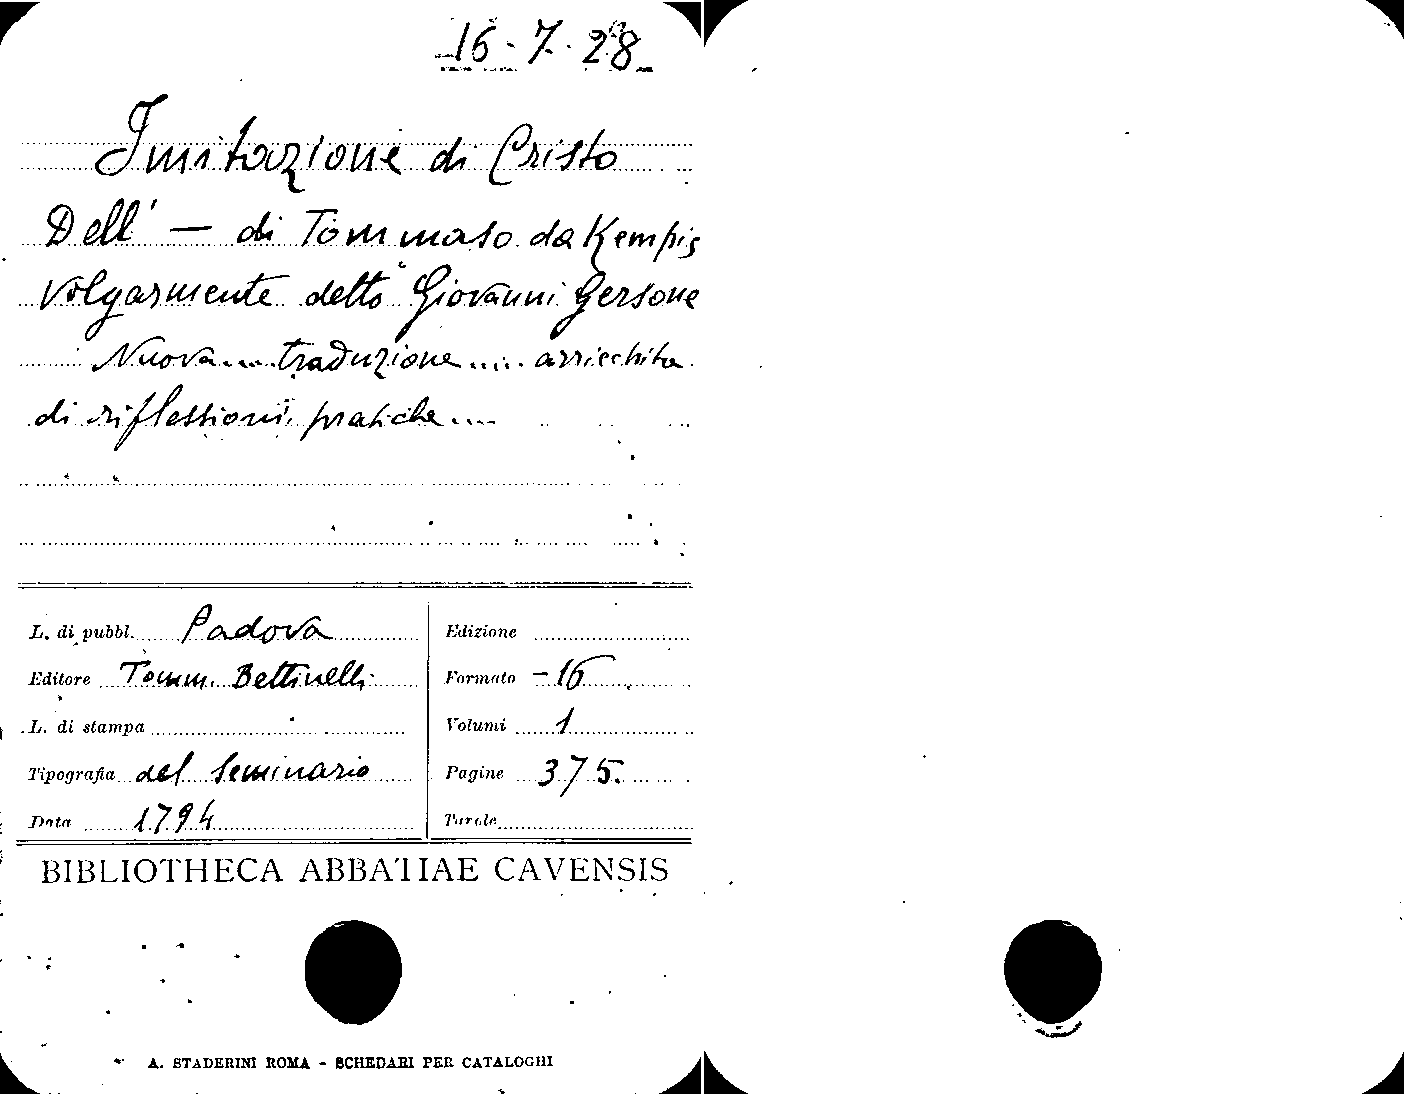 16-7-28
Imitazione di Cristo
Dell' — di Tommaso da Kempis
volgarmente detto Giovanni Gersone
Nuova.... traduzione..... arricchita
di riflessioni pratiche....
L. di pubbl. Padova
Editore Tomm. Bettinelli
L. di stampa
Tipografia del Seminario
Data 1794
Edizione
Formato -16
Volumi 1
Pagine 375.
Tavole
BIBLIOTHECA ABBATIAE CAVENSIS
A. STADERINI ROMA - SCHEDARI PER CATALOGHI